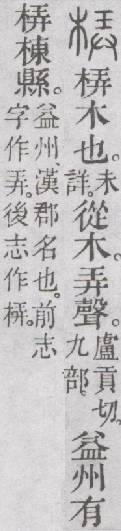 梇 梇木也。未詳。從木。弄聲。盧貢切。九部。益州有
梇棟縣。益州、漢郡名也。前志字作弄。後志作梇。